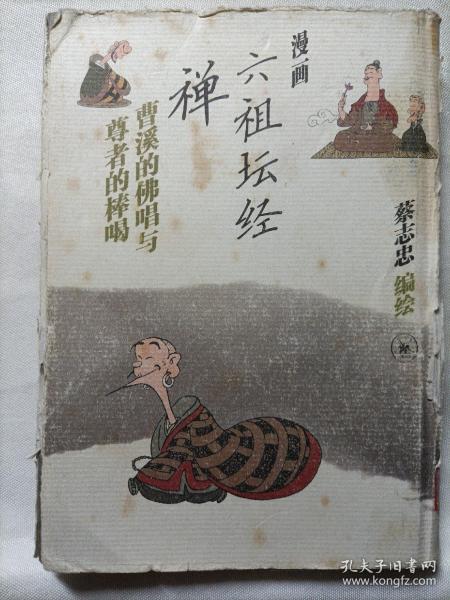 漫画
六祖坛经
禅
曹溪的佛唱与
尊者的棒喝
蔡志忠 编绘
孔夫子旧书网
www.kongfz.com